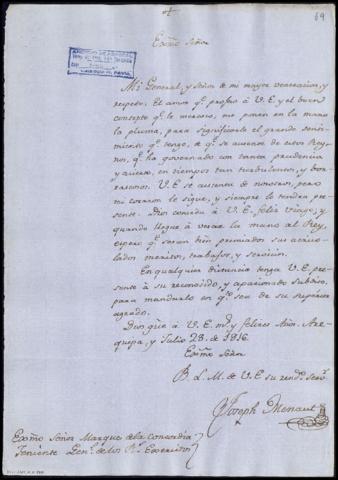 69
Exmõ Señor
Mi General, y Señor de mi mayor veneracion, y
respeto. El amor q.e profeso á V.E. y el buen
concepto q.e le merecio, me ponen en la mano
la pluma, para significarle el grande senti-
miento q.e tengo, de q.e se ausente de estos Rey-
nos, q.e ha governado con tanta prudencia
y acierto, en tiempos tan turbulentos, y
V.E. se ausenta de nosotros, pero
mi corazon le sigue, y siempre le tendra pre-
sente. Dios conceda á V.E. feliz viage, y
quando llegue á vesar la mano al Rey,
espero q.e seran bien premiados sus acriso-
lados meritos, trabajos, y servicios.
En qualquier distancia tenga V.E. pre-
sente á su reconocido, y apacionado subdito,
para mandarlo en q.to sea de su superior
agrado.
Dios gûe á V.E. m.s y felices Años. Are-
quipa, y Julio 28. de 1816.
Exmõ Señor
B. L. M. de V.E. su rend.o serv.r
Joseph Menaut
Exmõ Señor Marques de la Concordia
Teniente Gen.l de los R.s Exercitos